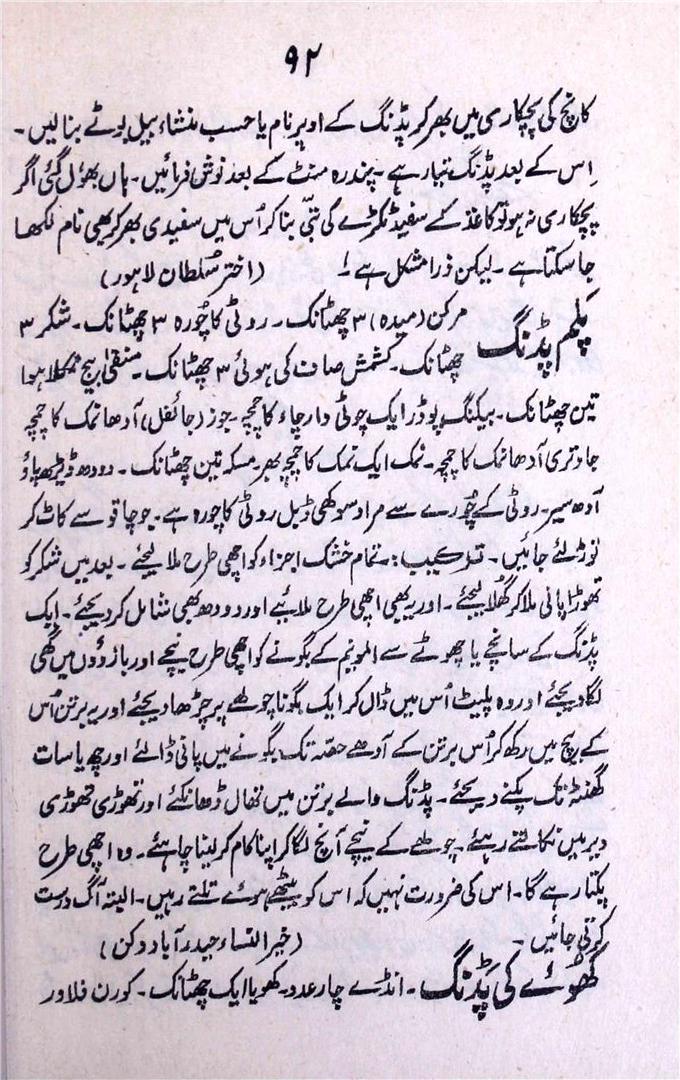 ۹۲
کانچ کی پچکاری میں بھر کر پڈنگ کے اوپر نام یا حسب منشاء بیل بوٹے بنالیں۔
اِس کے بعد پڈنگ تیار ہے۔ پندرہ منٹ کے بعد نوش فرمائیں۔ ہاں بھوُل گئی اگر
پچکاری نہ ہو تو کاغذ کے سفید ٹکڑے کی بتیّ بنا کر اُس میں سفیدی بھر کر بھی نام لکھا
جا سکتا ہے۔ لیکن ذرا مشکل ہے! (اختر سُلطان لاہور)
پلم پڈنگ مرکن (میدہ) ۳ چھٹانک۔ روٹی کا چُورہ ۳ چھٹانک۔ شکر ۳
چھٹانک۔ کشمش صاف کی ہوئی ۳ چھٹانک۔ منقیٰ بیج نکلا ہوا
تین چھٹانک۔ بیکنگ پوڈر ایک چوٹی دار چاء کا چمچہ۔ جوز (جائفل) آدھا نمک کا چمچہ
جاوتری آدھا نمک کا چمچہ۔ نمک ایک نمک کا چمچہ بھر۔ مسکہ تین چھٹانک۔ دودھ ڈیڑھ پاؤ
آدھ سیر۔ روٹی کے چُورے سے مراد سوکھی ڈبل روٹی کا چورہ ہے۔ جو چاقو سے کاٹ کر
توڑ لئے جائیں۔ ترکیب:۔ تمام خشک اجزاء کو اچھی طرح ملا لیجئے۔ بعد میں شکر کو
تھوڑا پانی ملا کر گھُلا لیجئے۔ اور یہ بھی اچھی طرح ملائیے اور دودھ بھی شامل کر دیجئے۔ ایک
پڈنگ کے سانچے یا چھوٹے سے المونیم کے بگونے کو اچھی طرح نیچے اور بازؤوں میں گھی
لگا دیجئے اور وہ پلیٹ اُس میں ڈال کر ایک بگونا چولھے پر چڑھا دیجئے اور یہ برتن اُس
کے بیچ میں رکھ کر اُس برتن کے آدھے حصّہ تک بگونے میں پانی ڈالئے اور چھ یا سات
گھنٹہ تک پکنے دیجئے۔ پڈنگ والے برتن میں تھال ڈھانکئے اور تھوڑی تھوڑی
دیر میں نکالتے رہئے۔ چولھے کے نیچے آنچ لگا کر اپنا کام کر لینا چاہئے۔ وہ اچھی طرح
پکتا رہے گا۔ اس کی ضرورت نہیں کہ اس کو بیٹھے ہوئے تلتے رہیں۔ البتہ آگ درست
کرتی جائیں۔ (خیر النساء حیدر آباد دکن)
کھوئے کی پڈنگ۔ انڈے چار عدد۔ کھویا ایک چھٹانک۔ کورن فلاور